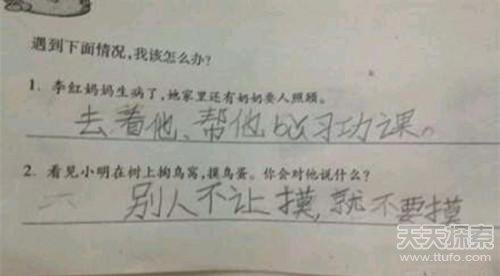 遇到下面情况,我该怎么办?
1. 李红妈妈生病了,她家里还有奶奶要人照顾。
去着他、帮他bǔ习功课。
2. 看见小明在树上掏鸟窝,摸鸟蛋。你会对他说什么?
别人不让摸,就不要摸
天天探索
www.ttufo.com